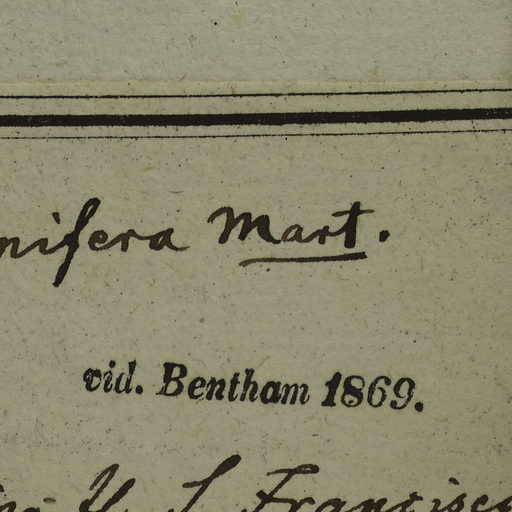 nifera Mart.
vid. Bentham 1869.
S. Francisc